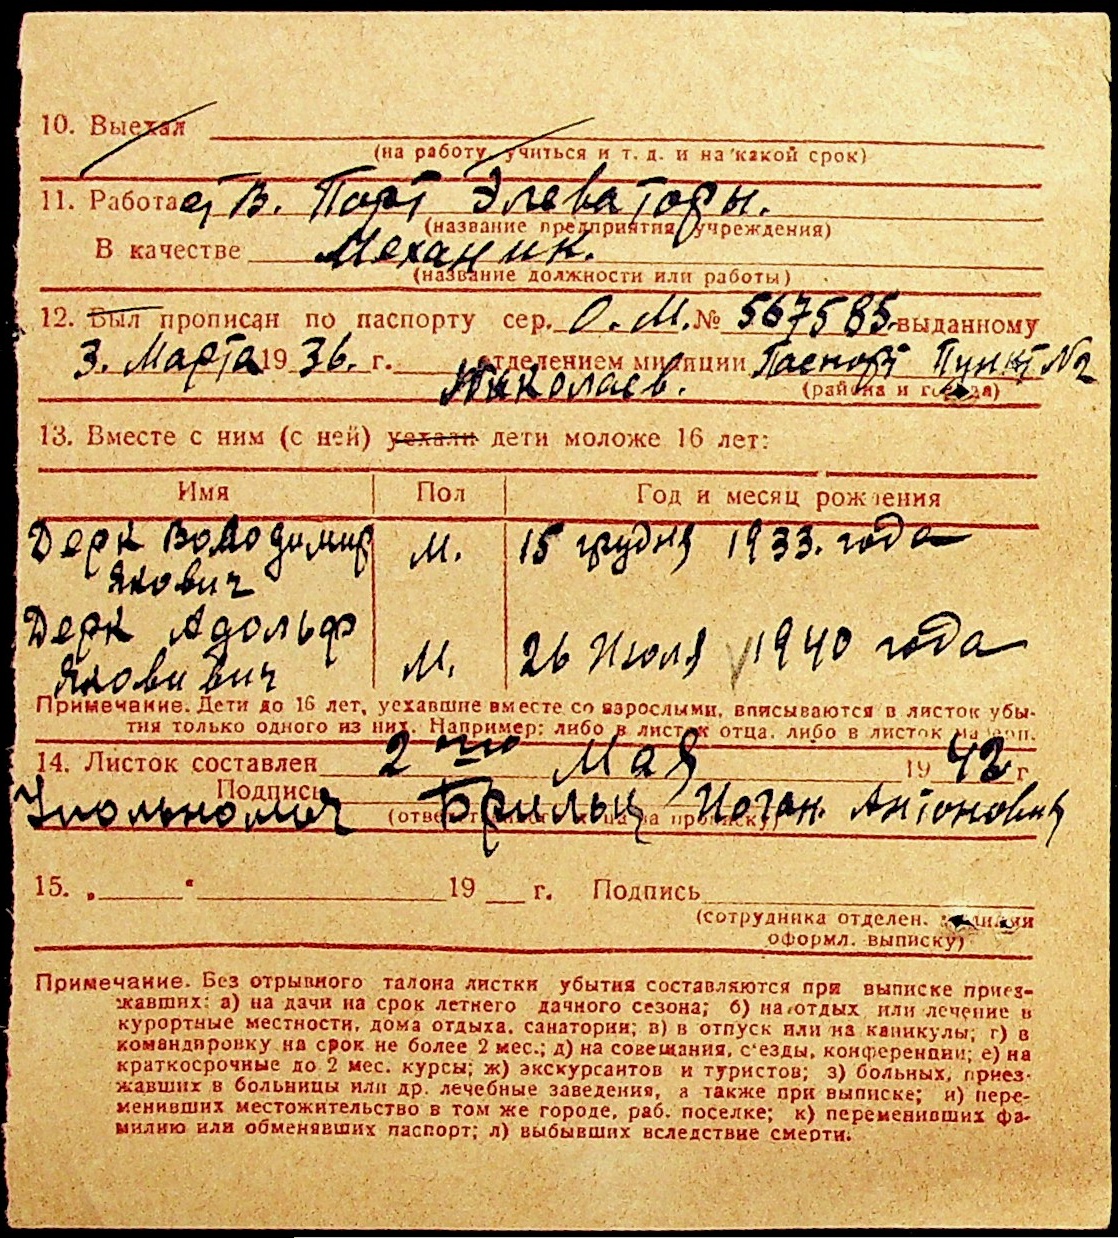 10. Выехал
(на работу, учиться и т. д. и на какой срок)
11. Работает В. Порт Элеваторы.
(название предприятия, учреждения)
В качестве Механик.
(название должности или работы)
12. Был прописан по паспорту сер. О. М. № 567585 выданному
3. Марта 1936. г. отделением милиции Паспорт Пункт №2
Николаев. (района и города)
13. Вместе с ним (с ней) уехали дети моложе 16 лет:
Имя Пол Год и месяц рождения
Дерк Володимир М. 15 грудня 1933. года
Якович
Дерк Адольф
М. 26 Июля 1940 года
Примечание. Дети до 16 лет, уехавшие вместе со взрослыми, вписываются в листок убы-
тия только одного из них. Например: либо в листок отца, либо в листок
14. Листок составлен 2 го Мая 1942 г.
Подпись
Брильц Иоган. Антонович
(ответ на прописку)
15. „ " 19 г. Подпись
(сотрудника отделен. милиции
оформл. выписку)
Примечание. Без отрывного талона листки убытия составляются при выписке приез-
жавших: а) на дачи на срок летнего дачного сезона; б) на отдых или лечение в
курортные местности, дома отдыха, санатории; в) в отпуск или на каникулы; г) в
командировку на срок не более 2 мес.; д) на совещания, с'езды, конференции; е) на
краткосрочные до 2 мес. курсы; ж) экскурсантов и туристов; з) больных, приез-
жавших в больницы или др. лечебные заведения, а также при выписке; и) пере-
менивших местожительство в том же городе, раб. поселке; к) переменивших фа-
милию или обменявших паспорт; л) выбывших вследствие смерти.